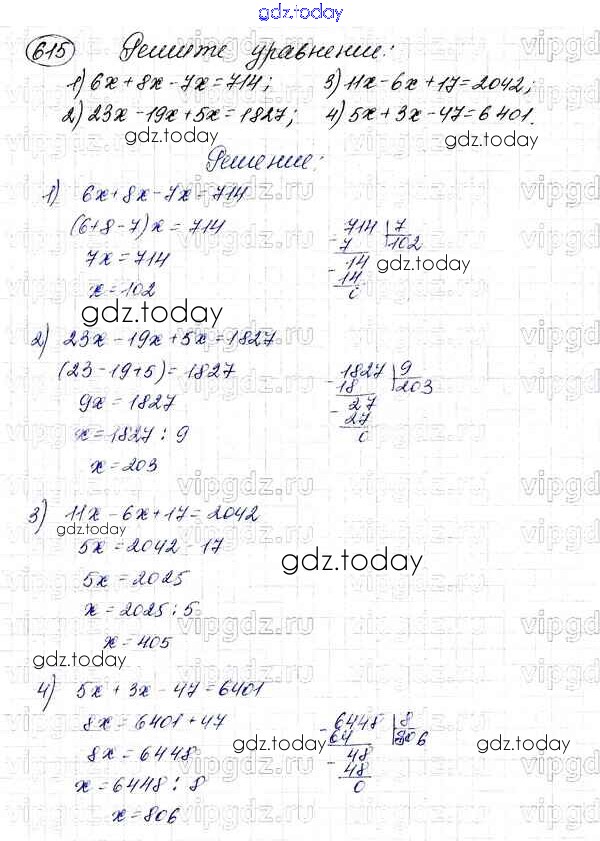 gdz.today
615 Решите уравнение:
1) 6x+8x-7x=714; 3) 11x-6x+17=2042;
2) 23x-19x+5x=1827; 4) 5x+3x-47=6401.
gdz.today gdz.today
Решение:
1) 6x+8x-7x-714
(6+8-7)x=714
7x=714
x=102
714 | 7
- 7 | 102
14
- 14
0
gdz.today
gdz.today
2) 23x-19x+5x=1827
(23-19+5)=1827
9x=1827
x=1827:9
x=203
- 1827 | 9
18 | 203
- 27
27
0
3) 11x-6x+17=2042
gdz.today
5x=2042-17
gdz.today
5x=2025
x=2025:5
x=405
gdz.today
4) 5x+3x-47=6401
8x=6401+47
8x=6448
x=6448:8
x=806
- 6448 | 8
64 | 806
- 48
48
0
gdz.today gdz.today
vipgdz.ru